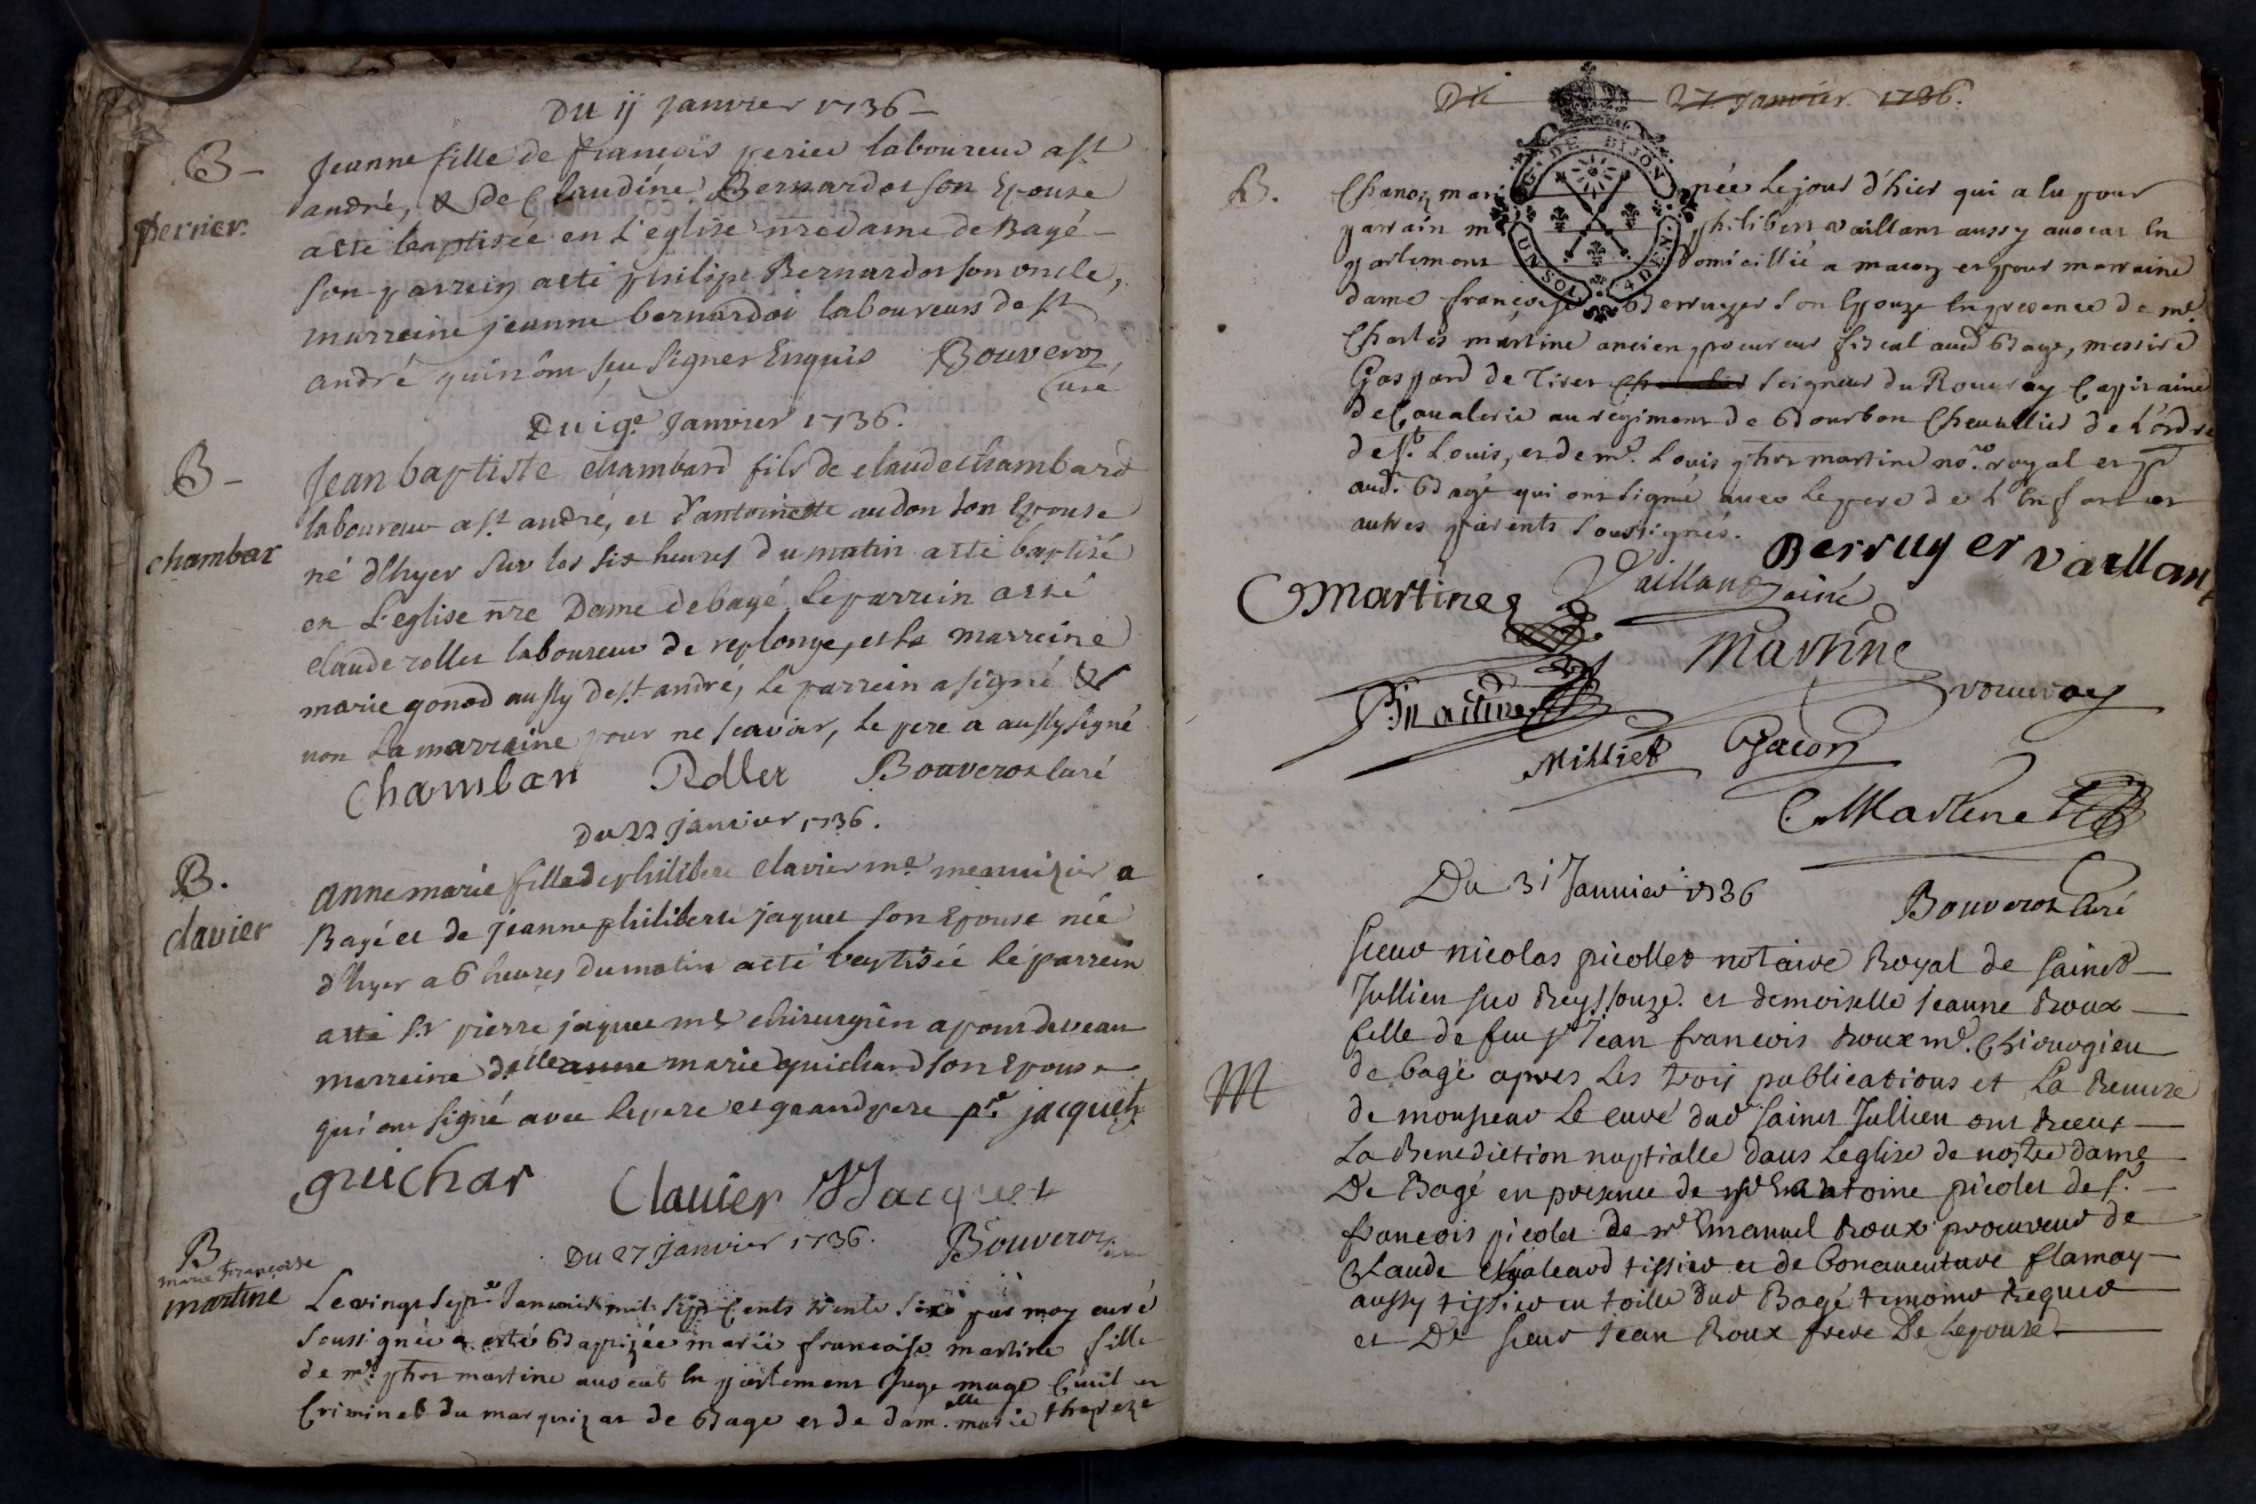 Du 11 janvier 1736
B
perrier
Jeanne fille de francois perier laboureur a st
andré, & de Claudine Bernardot son Epouse
a eté baptisée en L'eglise nre dame de Bagé
son parrein a eté philipe Bernardot son oncle,
marreine jeanne bernardot laboureurs de st
andré qui n'ont sçu signer Enquis Bouverot
Curé
Du 19e Janvier 1736.
B
chambar
Jean baptiste chambard fils de claude chambard
laboureur a st andré, et d'antoinette audon son Epouse
né d'hyer sur les six heures du matin a eté baptisé
en L'eglise nre Dame de bagé, le parrein a eté
claude rollet laboureur de replonge, et la marreine
marie gonod aussy de st andré, le parrein a signé &
non la marreine pour ne scavoir, le pere a aussy signé
Chamban Rollet Bouverot Curé
Du 22 janvier 1736.
B.
clavier
anne marie fille de philibert clavier me menuizier a
Bagé et de jeanne philiberte jaquet son Epouse née
d'hyer a 6 heures du matin a eté baptisée le parrein
a eté sr pierre jaquet me chirurgien a pont de veau
marreine delle anne marie guichard son Epouse
qui ont signé avec le pere et grand pere pre jacquet
guichar Clavier Jacquet
Du 27 janvier 1736. Bouverot
B
marie francoise
martine
Le vingt sept Janvier mil sept Cents trente six par moy curé
soussignée a esté Baptizée marie francoise martine fille
de me martine avocat En parlement Juge mage Civil et
Criminel du marquizat de Bage et de damelle marie therese
Du 27 Janvier 1736.
B.
Chanoz mari née le jour d'hier qui a Eu pour
parrain me philibert vaillant aussy avocat En
parlement domicillié a macon et pour marraine
dame françoise Berruyer son Epouze En presence de me
Charles martine ancien procureur fiscal aud Bage, messire
Gaspard de Tiser seigneur du Rouvray Capitaine
de Cavalerie au regiment de Bourbon Chevallier de L'ordre
de St. Louis, et de me. Louis martine nore royal et pr
aud. Bagé qui ont signé avec le pere de L'Enfant et
autres parents soussignés.
Berruyer vaillant
Martine Vaillant ainé
Martine
rouvray
Martine
Milliet Gacon
C. Martine
Du 31 Janvier 1736 Bouverot Curé
M
sieur nicolas picollet notaire Royal de sainct
Jullien sur Reyssouze. et demoiselle jeanne Roux
fille de feu sr Jean francois Roux me. Chirurgien
de bagé apres Les trois publications et La Remise
de monsieur Le curé dud saint Jullien ont Receut
La Benediction nuptialle dans Leglise de nostre dame
De Bagé en presence de antoine picolet de sr.
francois picolet de me Emanuel Roux procureur de
Claude tissier et de bonaventure flamay
aussy tissier en toille dud Bagé temoins Requis
et De sieur Jean Roux frere De Lepouse